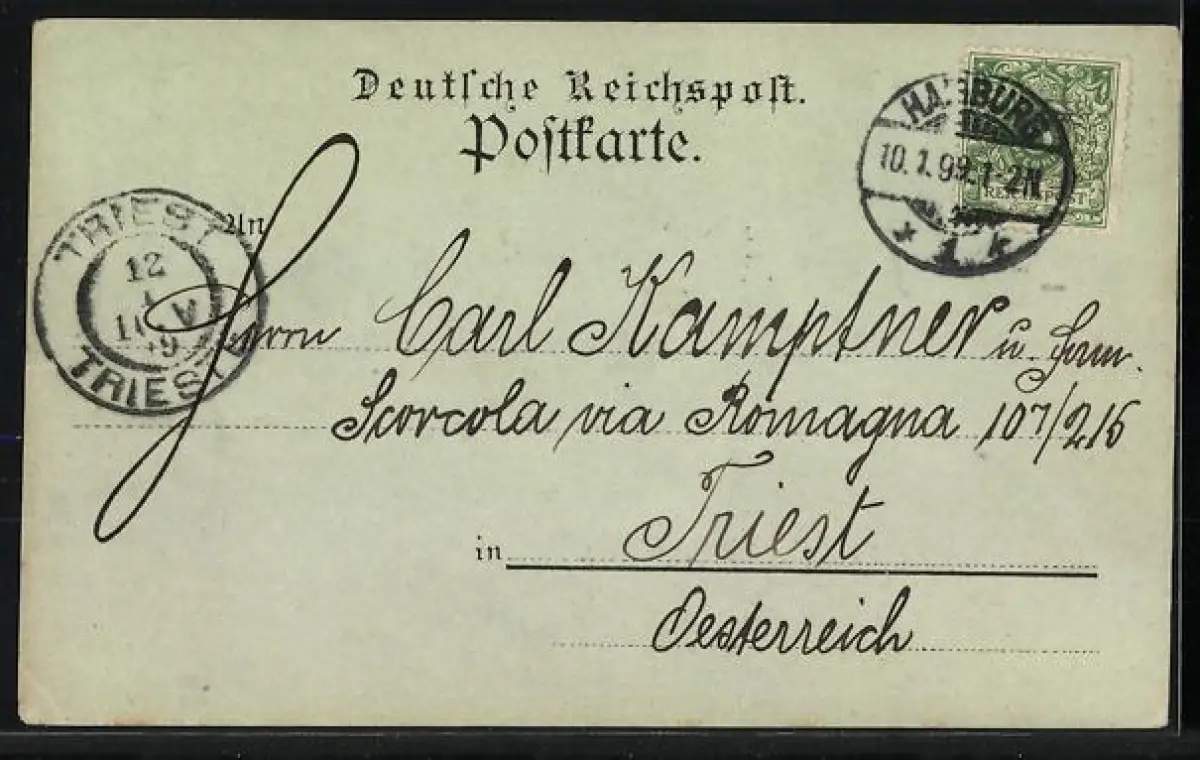 Deutsche Reichspost.
Postkarte.
HAMBURG
10.1.99.1-2N.
* 1 *
REICHSPOST
TRIEST
12
1
TRIEST
An
Herrn Carl Kamptner u. Fam.
Scorcola via Romagna 107/215
in Triest
Oesterreich